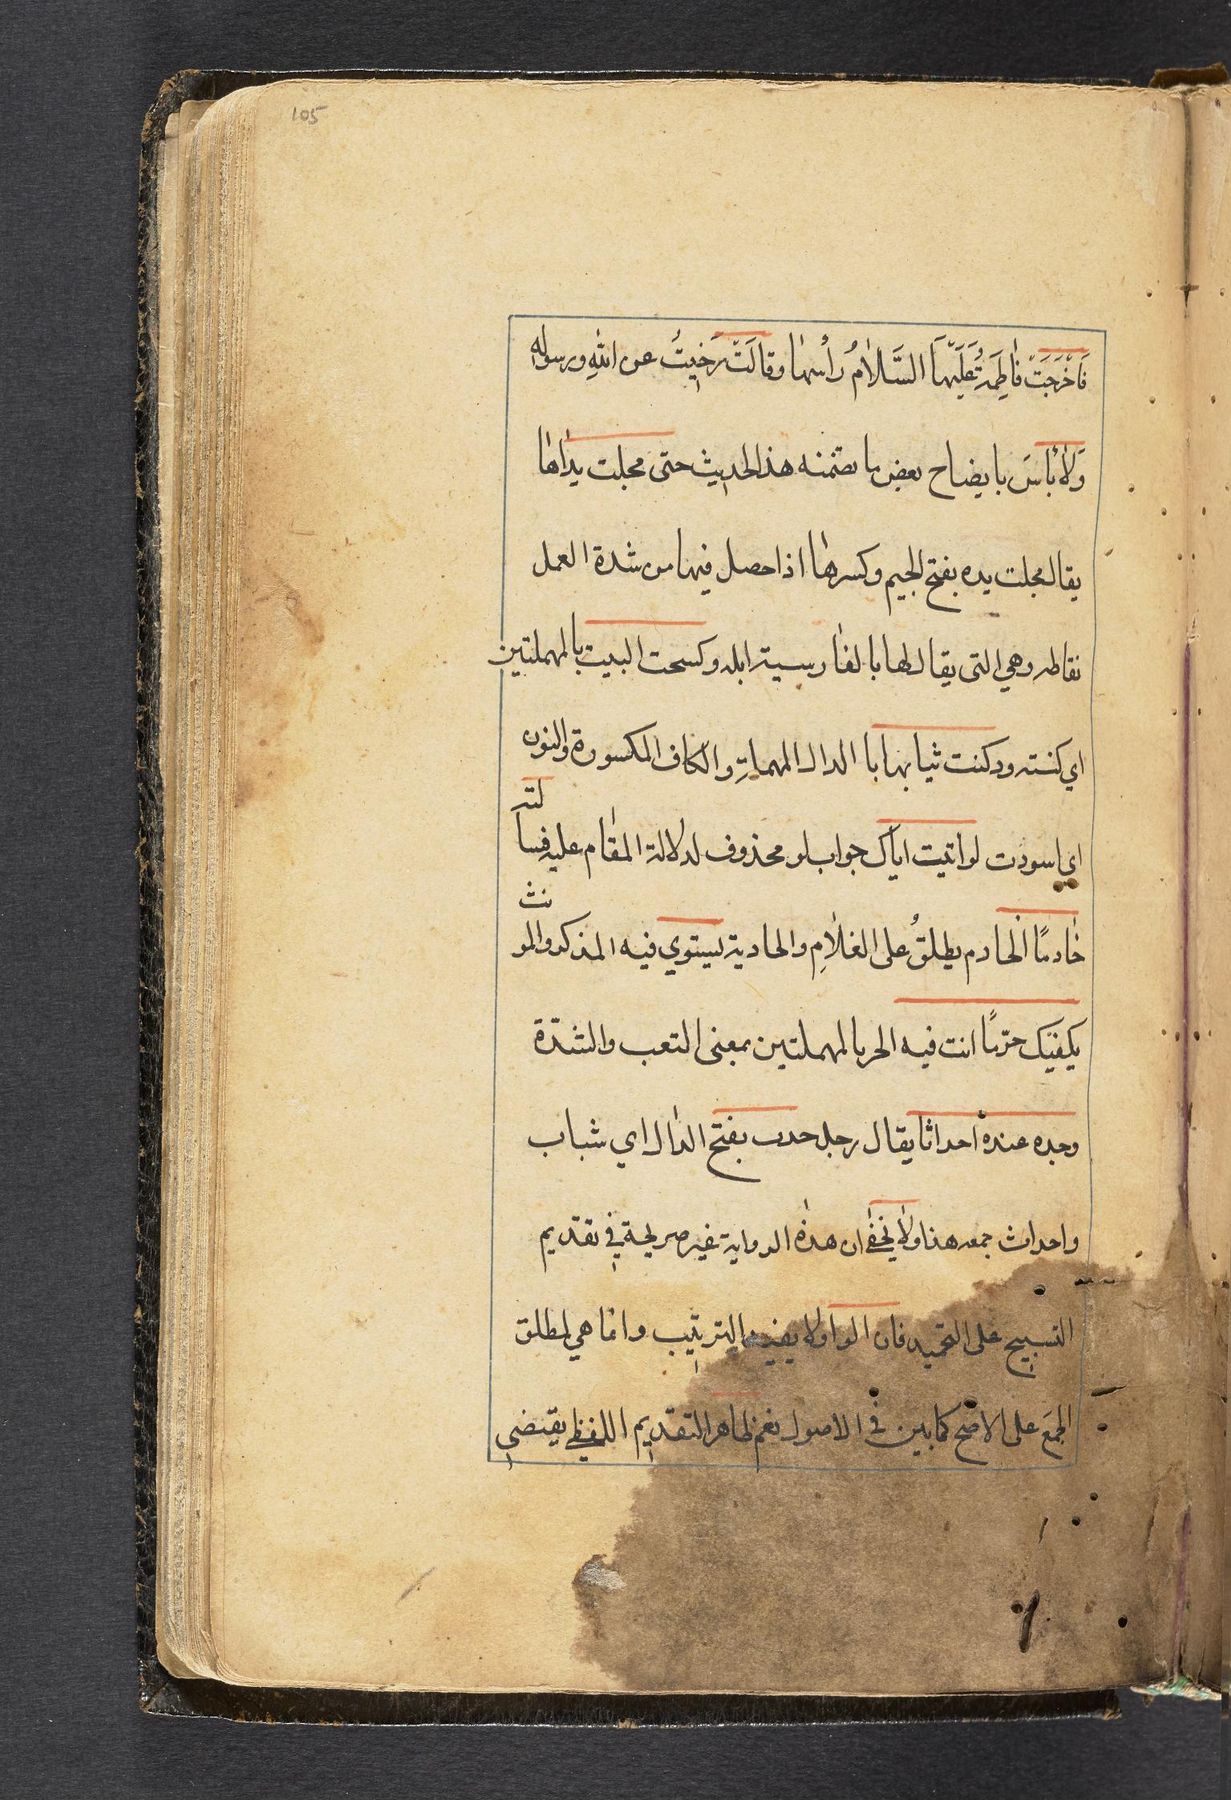 105
فَاَخْرَجَتْ فاٰطِمَةُ عَلَيْهَا السَّلاٰمُ رَأسَهٰا وقالَتْ رَضِيتُ عن اللّٰهِ ورسولِهِ
وَلاٰ بَأسَ بايضاح بعض ما تضمنه هذا الحديث حتى مجلت يداٰهاٰ
يقال مجلت يده بفتح الجيم وكسرهاٰ اذا حصل فيها من شدة العمل
نقاطه وهي التى يقال لها بالفاٰرسية ابله وكسحت البيت بالمهملتين
اي كنسته ودكنت ثيابها با الدال المهملةِ والكاف المكسورة والنون
اي اسودت لو اتيت اباك جواب لو محذوف لدلالة المقاٰم عليه فسالته
خاٰدمًا الخاٰدم يطلقُ على الغلاٰمِ والجارية يستوي فيه المذكر والمونث
يكفيك حرّ ماٰ انت فيه الحر بالمهملتين بمعنى التعب والشدّة
وجده عنده احداثا يقال رجل حدث بفتح الداٰل اي شباب
واحداث جمعه هذا ولاٰ يخفىٰ ان هذهٰ الرواية غير صريحة في تقديم
التسبيح على التحميد فان الواو لا يفيد الترتيب وانماٰ هي لمطلق
الجمع على الاصح كما بين فى الاصول نعم ظاهر التقديم اللفظي يقتضي